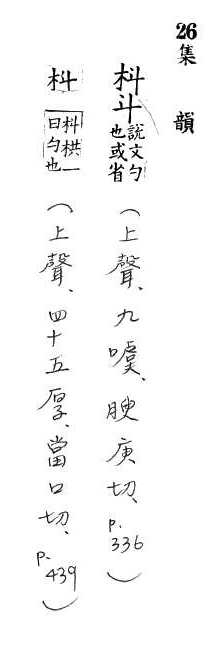 26集 韻
枓斗說文勺也或省(上聲、九噳、腴庾切、p.336)
枓枓栱一曰勺也(上聲、四十五厚、當口切、p.439)